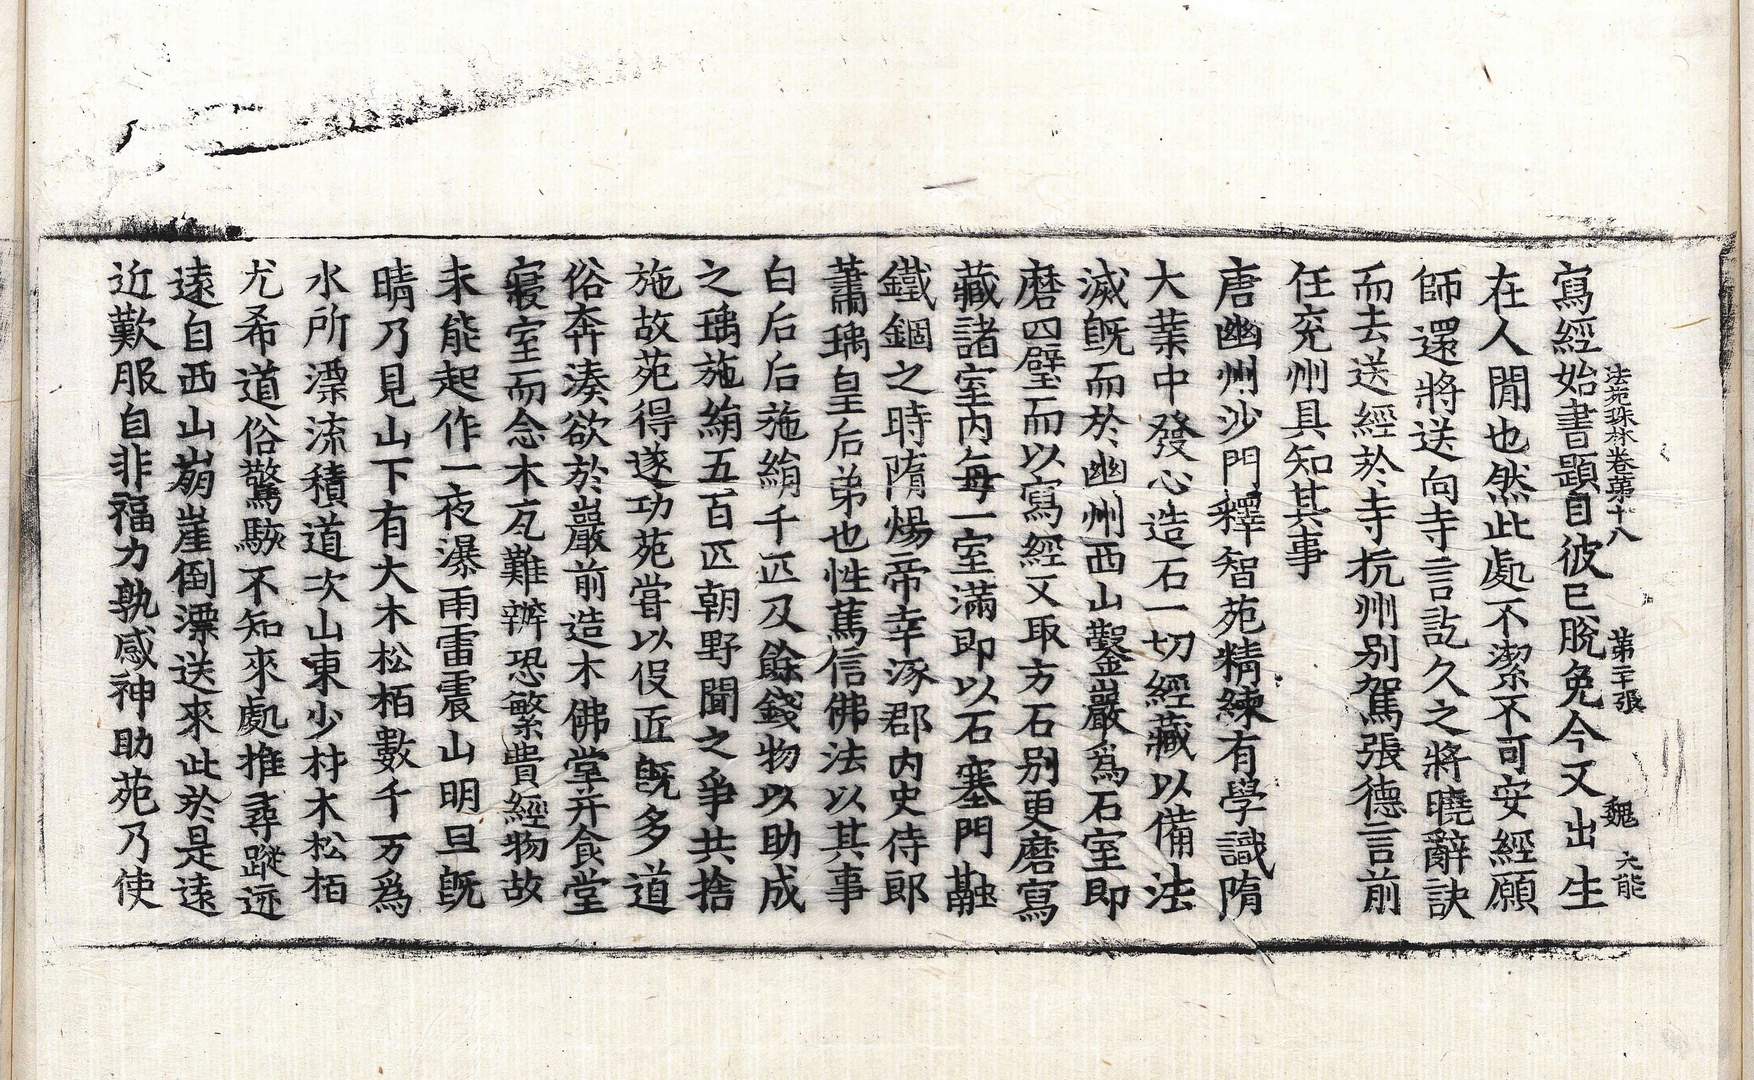 法苑珠林卷第十八 第二十張 魏 大能
寫經始書題自彼已脫免今又出生
在人閒也然此處不潔不可安經願
師還將送向寺言訖久之將曉辭訣
而去送經於寺杭州別駕張德言前
任兖州具知其事
唐幽州沙門釋智苑精練有學識隋
大業中發心造石一切經藏以備法
滅旣而於幽州西山鑿巖爲石室即
磨四壁而以寫經又取方石別更磨寫
藏諸室內每一室滿即以石塞門融
鐵錮之時隋煬帝幸涿郡內史侍郎
蕭瑀皇后弟也性篤信佛法以其事
白后后施絹千匹及餘錢物以助成
之瑀施絹五百匹朝野聞之爭共捨
施故苑得遂功苑甞以役匠旣多道
俗奔湊欲於巖前造木佛堂并食堂
寢室而念木瓦難辦恐繁費經物故
未能起作一夜瀑雨雷震山明旦旣
晴乃見山下有大木松栢數千万爲
水所漂流積道次山東少林木松栢
尤希道俗驚駭不知來處推尋蹤迹
遠自西山崩崖倒漂送來此於是遠
近歎服自非福力孰感神助苑乃使